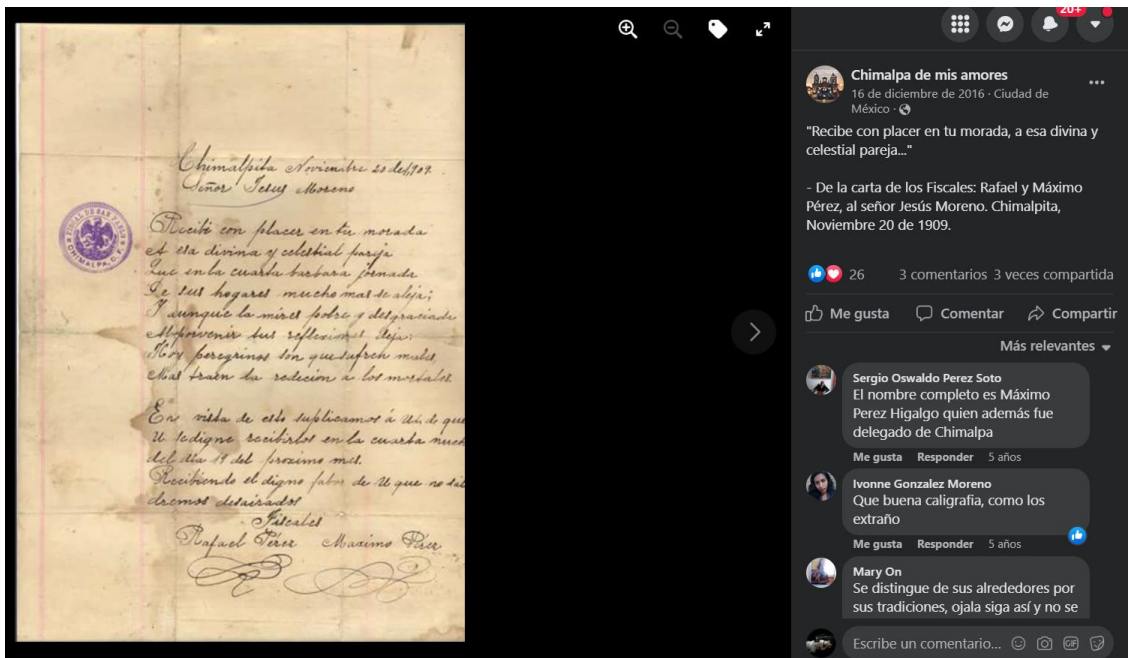 Chimalpita Noviembre 20 de 1,909.
Señor Jesus Moreno
FISCAL DE SAN PABLO
CHIMALPA, D. F.
Recibe con placer en tu morada
A esa divina y celestial pareja
Que en la cuarta barbara jornada
De sus hogares mucho mas se aleja;
Y aunque la mires pobre y desgraciada
Al porvenir tus reflexiones deja:
Hoy peregrinos son que sufren males
Mas traen la redición a los mortales.
En vista de esto suplicamos á Ud. de que
U se digne recibirlos en la cuarta noche
del dia 19 del proximo mes.
Recibiendo el digno fabor de U que no sal
dremos desairados
Fiscales
Rafael Pérez Maximo Pérez
20+
Chimalpa de mis amores
16 de diciembre de 2016 · Ciudad de
México ·
"Recibe con placer en tu morada, a esa divina y
celestial pareja..."
- De la carta de los Fiscales: Rafael y Máximo
Pérez, al señor Jesús Moreno. Chimalpita,
Noviembre 20 de 1909.
26 3 comentarios 3 veces compartida
Me gusta Comentar Compartir
Más relevantes
Sergio Oswaldo Perez Soto
El nombre completo es Máximo
Perez Higalgo quien además fue
delegado de Chimalpa
Me gusta Responder 5 años
Ivonne Gonzalez Moreno
Que buena caligrafía, como los
extraño
Me gusta Responder 5 años
Mary On
Se distingue de sus alrededores por
sus tradiciones, ojala siga así y no se
Escribe un comentario...
GIF